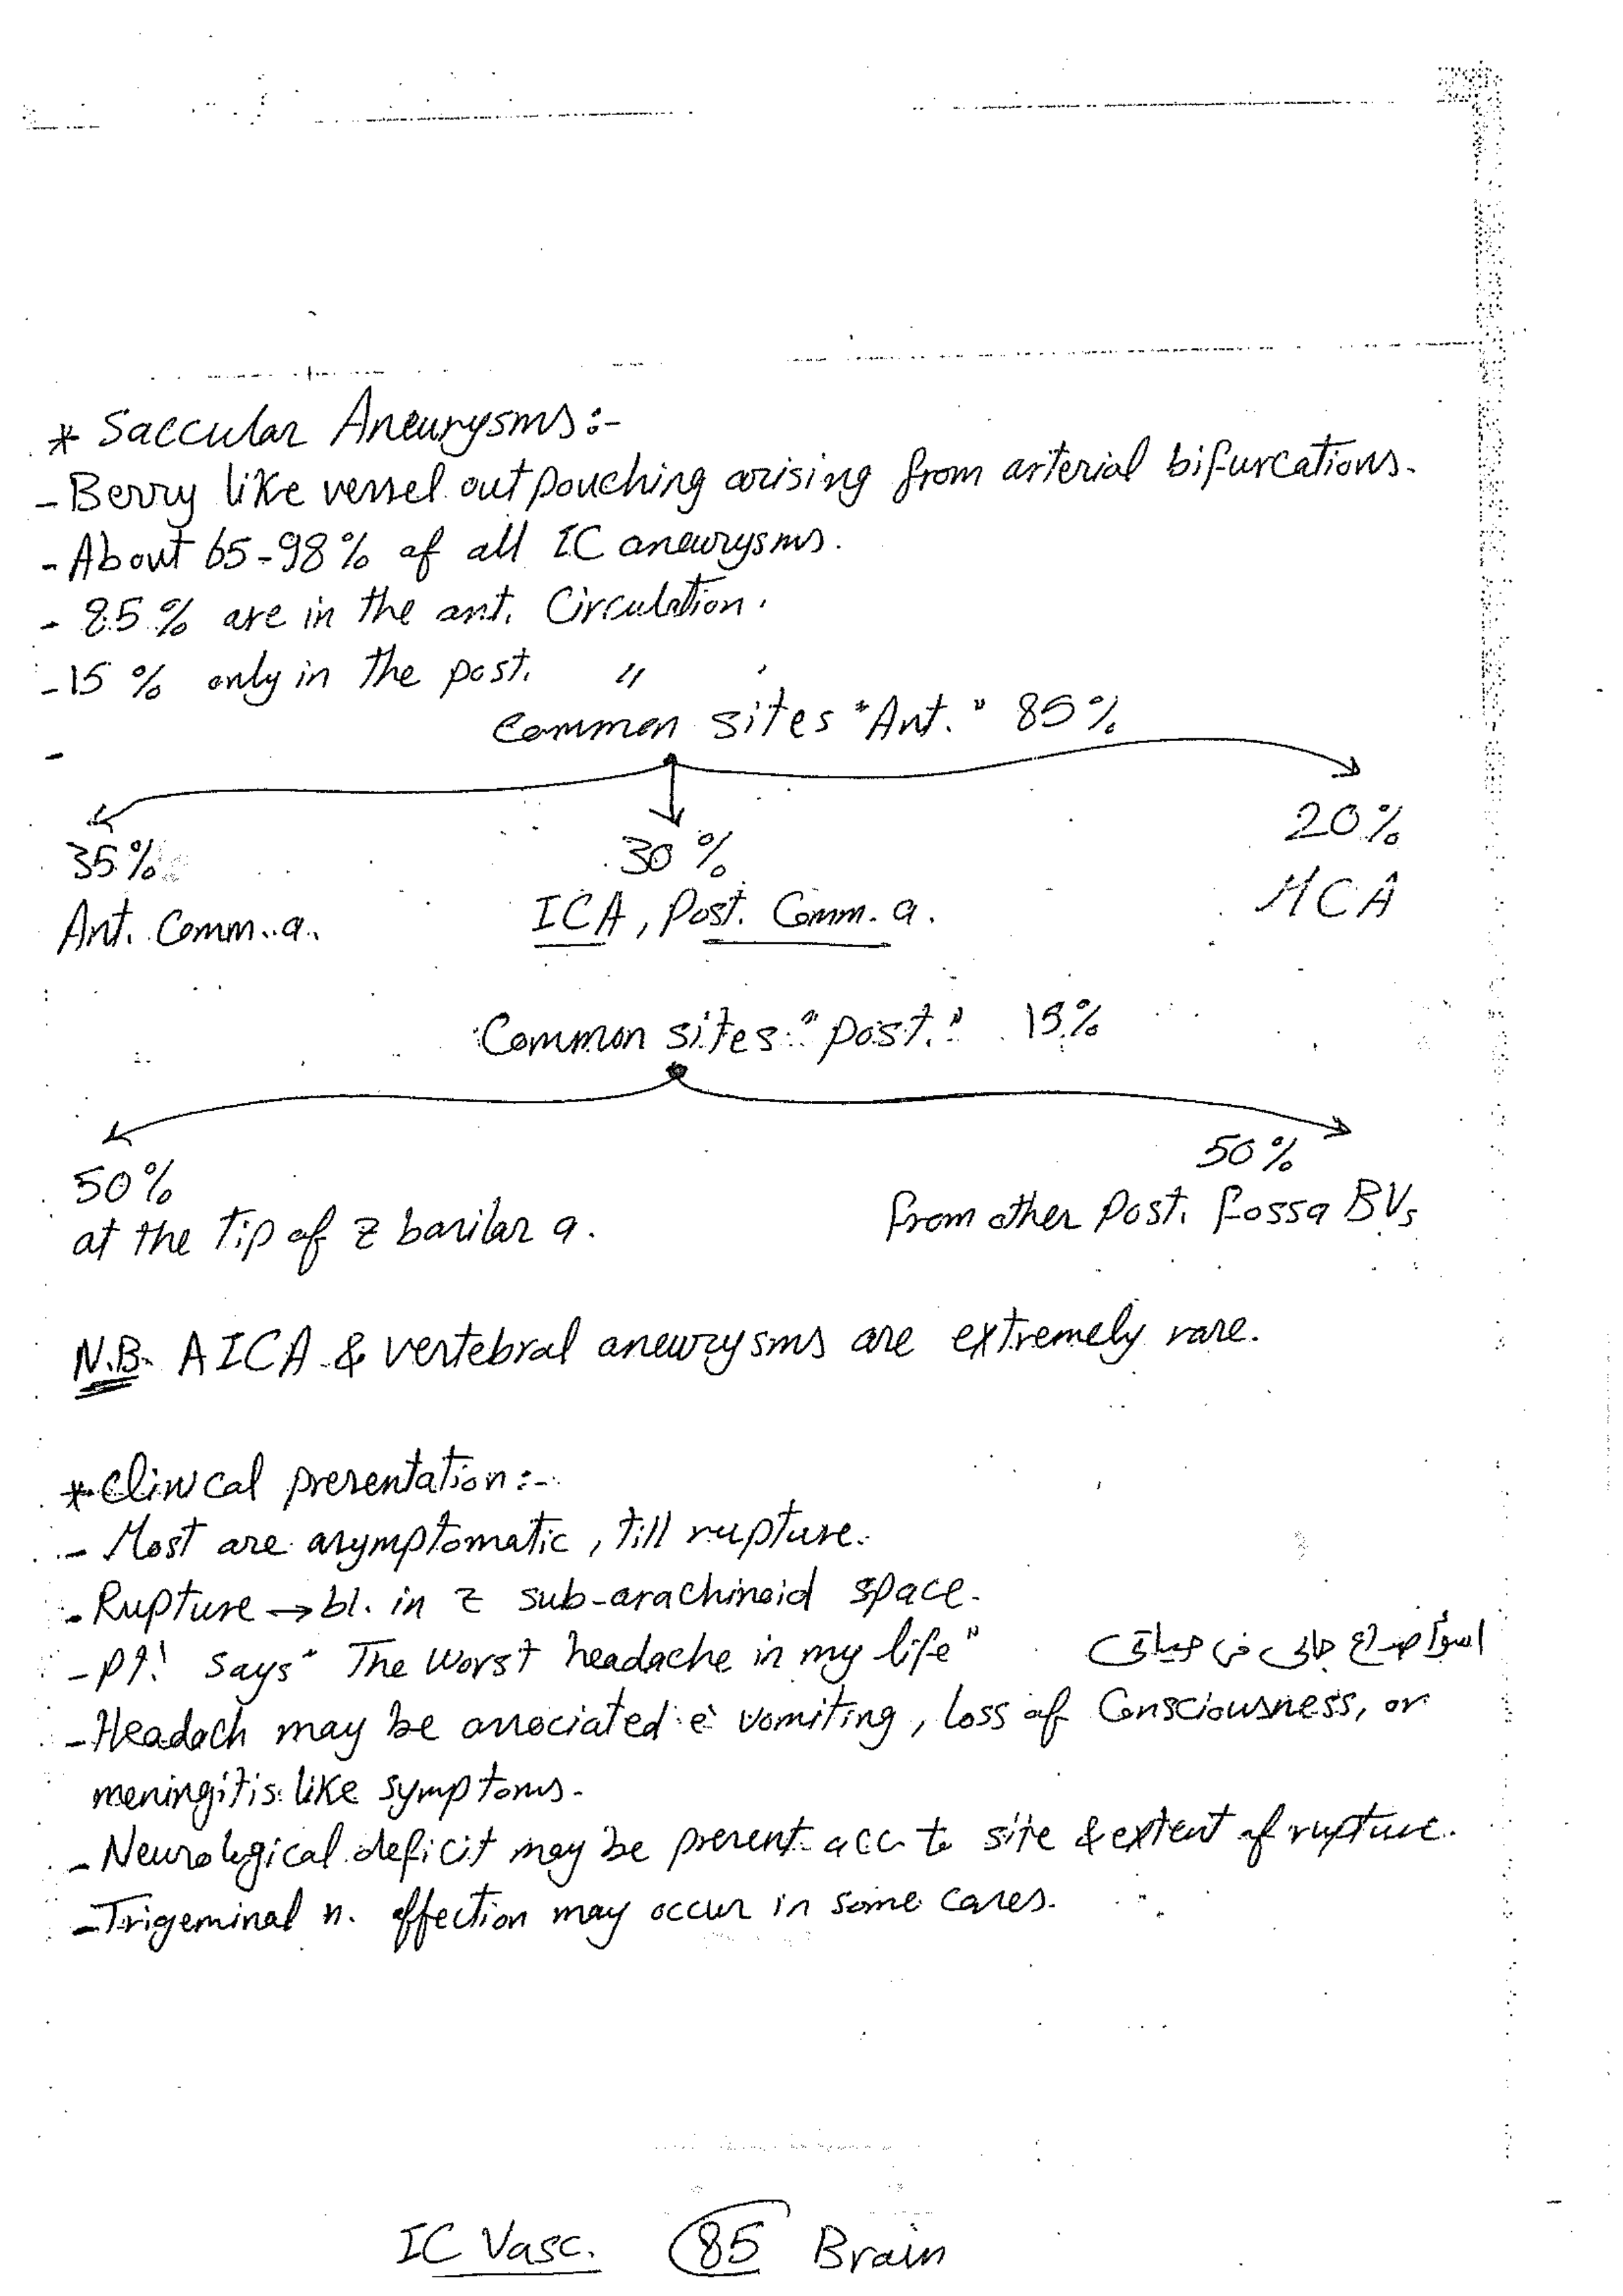 * Saccular Aneurysms:-
- Berry like vessel outpouching arising from arterial bifurcations.
- About 65-98% of all IC aneurysms.
- 85% are in the ant. Circulation.
- 15% only in the post. " .
Common sites "Ant." 85%
-
35% 30% 20%
Ant. Comm. a. ICA, Post. Comm. a. MCA
Common sites "post." 15%
50% 50%
at the tip of z basilar a. from other Post. fossa BVs
N.B. AICA & vertebral aneurysms are extremely rare.
* Clinical presentation:-
- Most are asymptomatic, till rupture.
- Rupture → bl. in z sub-arachinoid space.
- Pt! says "The worst headache in my life" اسوأ صداع جالى فى حياتى
- Headach may be associated è vomiting, loss of Consciousness, or
meningitis like symptoms.
- Neurological deficit may be present acc to site & extent of rupture.
- Trigeminal n. affection may occur in some cases.
IC Vasc. 85 Brain